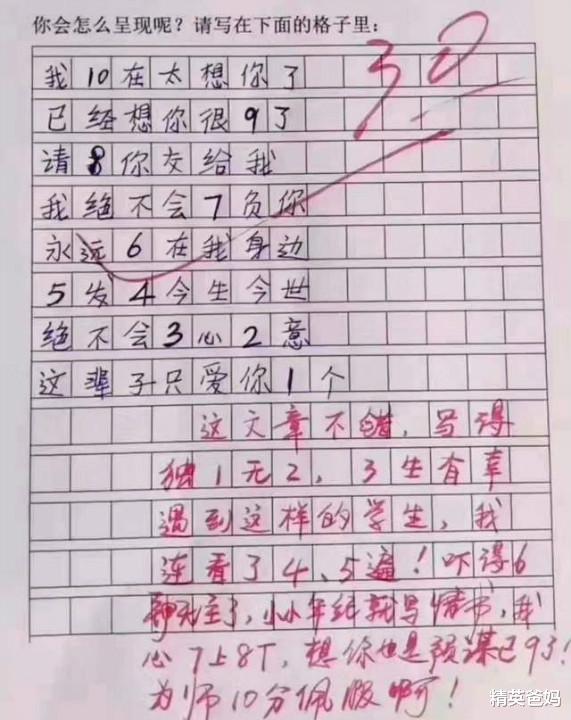 你会怎么呈现呢？请写在下面的格子里：
30
我10在太想你了
已经想你很9了
请8你交给我
我绝不会7负你
永远6在我身边
5发4今生今世
绝不会3心2意
这辈子只爱你1个
这文章不错，写得
独1无2，3生有幸
遇到这样的学生，我
连看了4、5遍！吓得6
神无主了，小小年纪就写情书，我
心7上8下，想你也是预谋已9了！
为师10分佩服啊！
精英爸妈